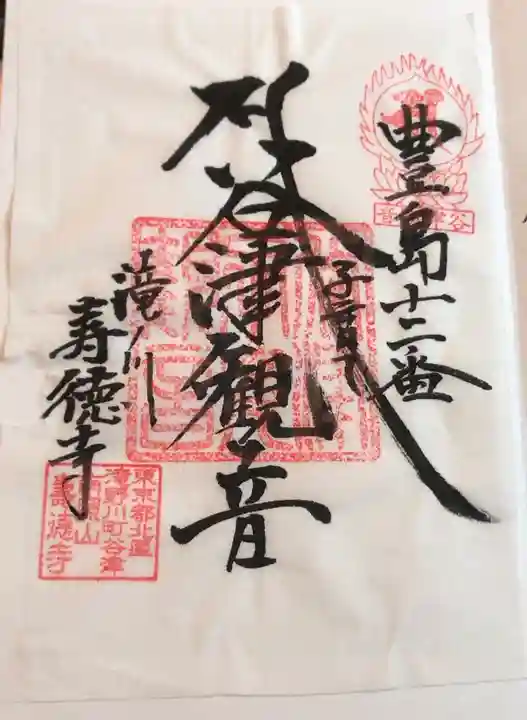 豊島十二番
谷津観音
子育て
滝ノ川
寿徳寺
東京都北區
滝野川町谷津
壽徳寺